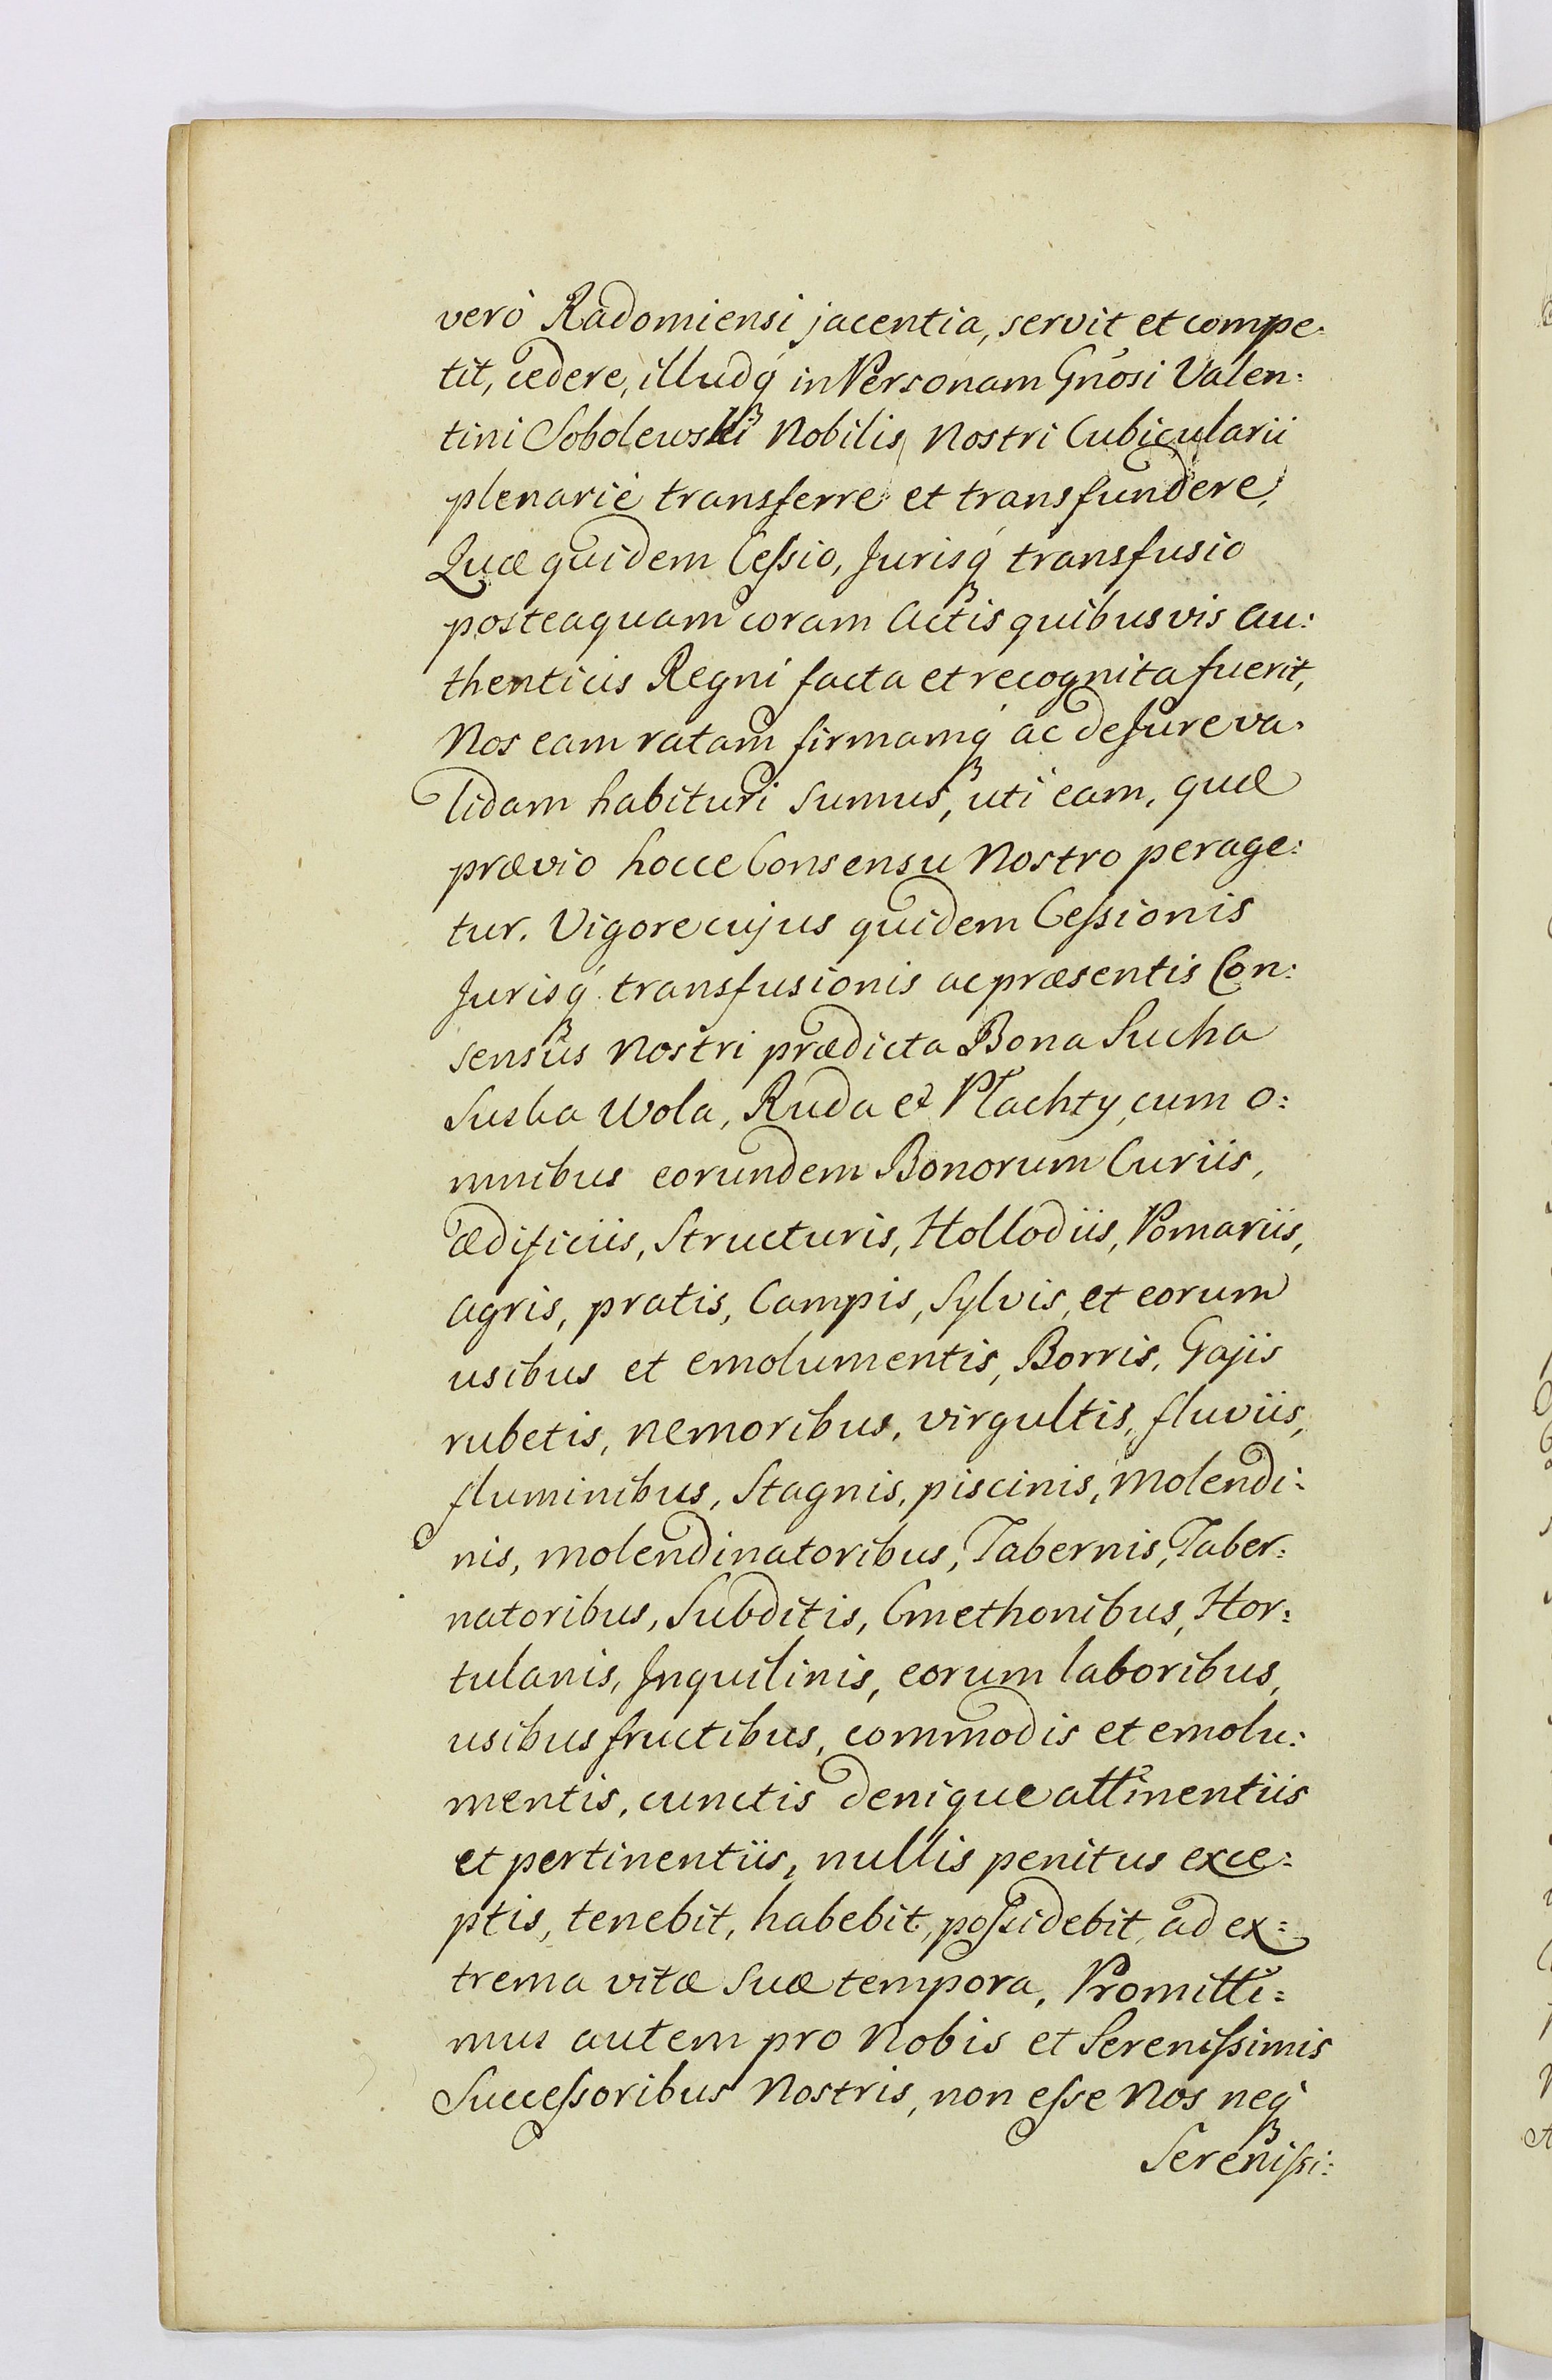 verò Radomiensi jacentia, servit et compe:
tit, cedere, illudq́ in Personam Gñosi Valen:
tini Sobolewski Nobilis Nostri Cubicularii
plenariè transferre et transfundere,
Quæ quidem Ceſsio, Jurisq́ transfusio
posteaquam coram Actis quibusvis au:
thenticis Regni facta et recognita fuerit,
Nos eam ratam firmamq́ ac de Jure va:
lidam habituri sumus, uti eam, quæ
prævio hocce Consensu Nostro perage:
tur. Vigore cujus quidem Ceſsionis
Jurisq́ transfusionis ac præsentis Con:
sensûs Nostri prædicta Bona Sucha
Suska Wola, Ruda et Płachty, cum o:
mnibus eorundem Bonorum Curiis,
ædificiis, Structuris, Hollodiis, Pomariis,
agris, pratis, Campis, Sylvis, et eorum
usibus et emolumentis, Borris, Gajis
rubetis, nemoribus, virgultis, fluviis,
fluminibus, Stagnis, piscinis, Molendi:
nis, molendinatoribus, Tabernis, Taber:
natoribus, Subditis, Cmethonibus, Hor:
tulanis, Inquilinis, eorum laboribus,
usibus fructibus, commodis et emolu:
mentis, cunctis denique attinentiis
et pertinentiis, nullis penitus exce:
ptis, tenebit, habebit, poſsidebit, ad ex:
trema vitæ suæ tempora, Promitti:
mus autem pro Nobis et Sereniſsimis
Succeſsoribus Nostris, non eſse Nos neq́
Sereniſsi: